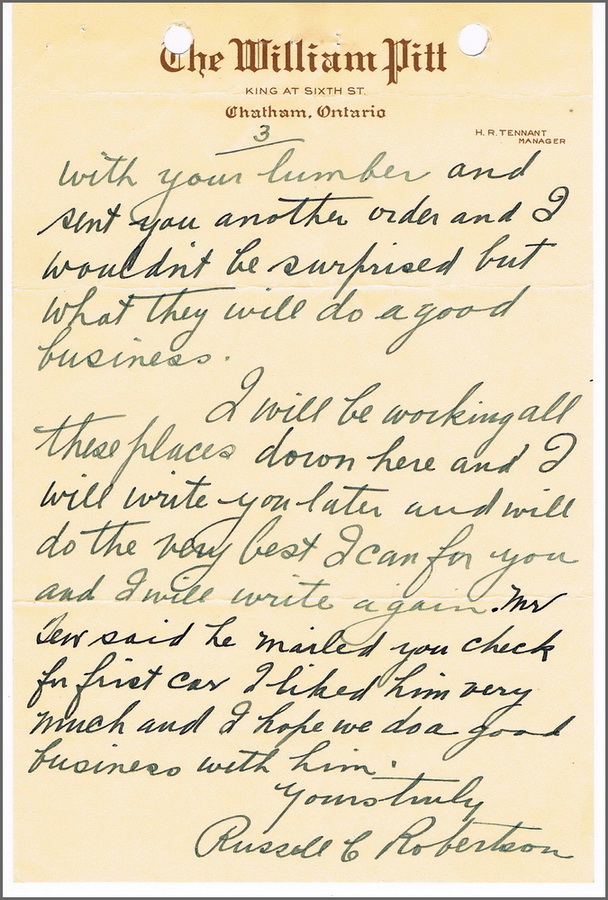 The William Pitt
KING AT SIXTH ST.
Chatham, Ontario
H. R. TENNANT
MANAGER
3
with your lumber and
sent you another order and I
wouldn't be surprised but
what they will do a good
business.
I will be working all
these places down here and I
will write you later and will
do the very best I can for you
and I will write again. Mr
Tew said he mailed you check
for frist car I liked him very
much and I hope we do a good
business with him.
Yours truly
Russell C Robertson